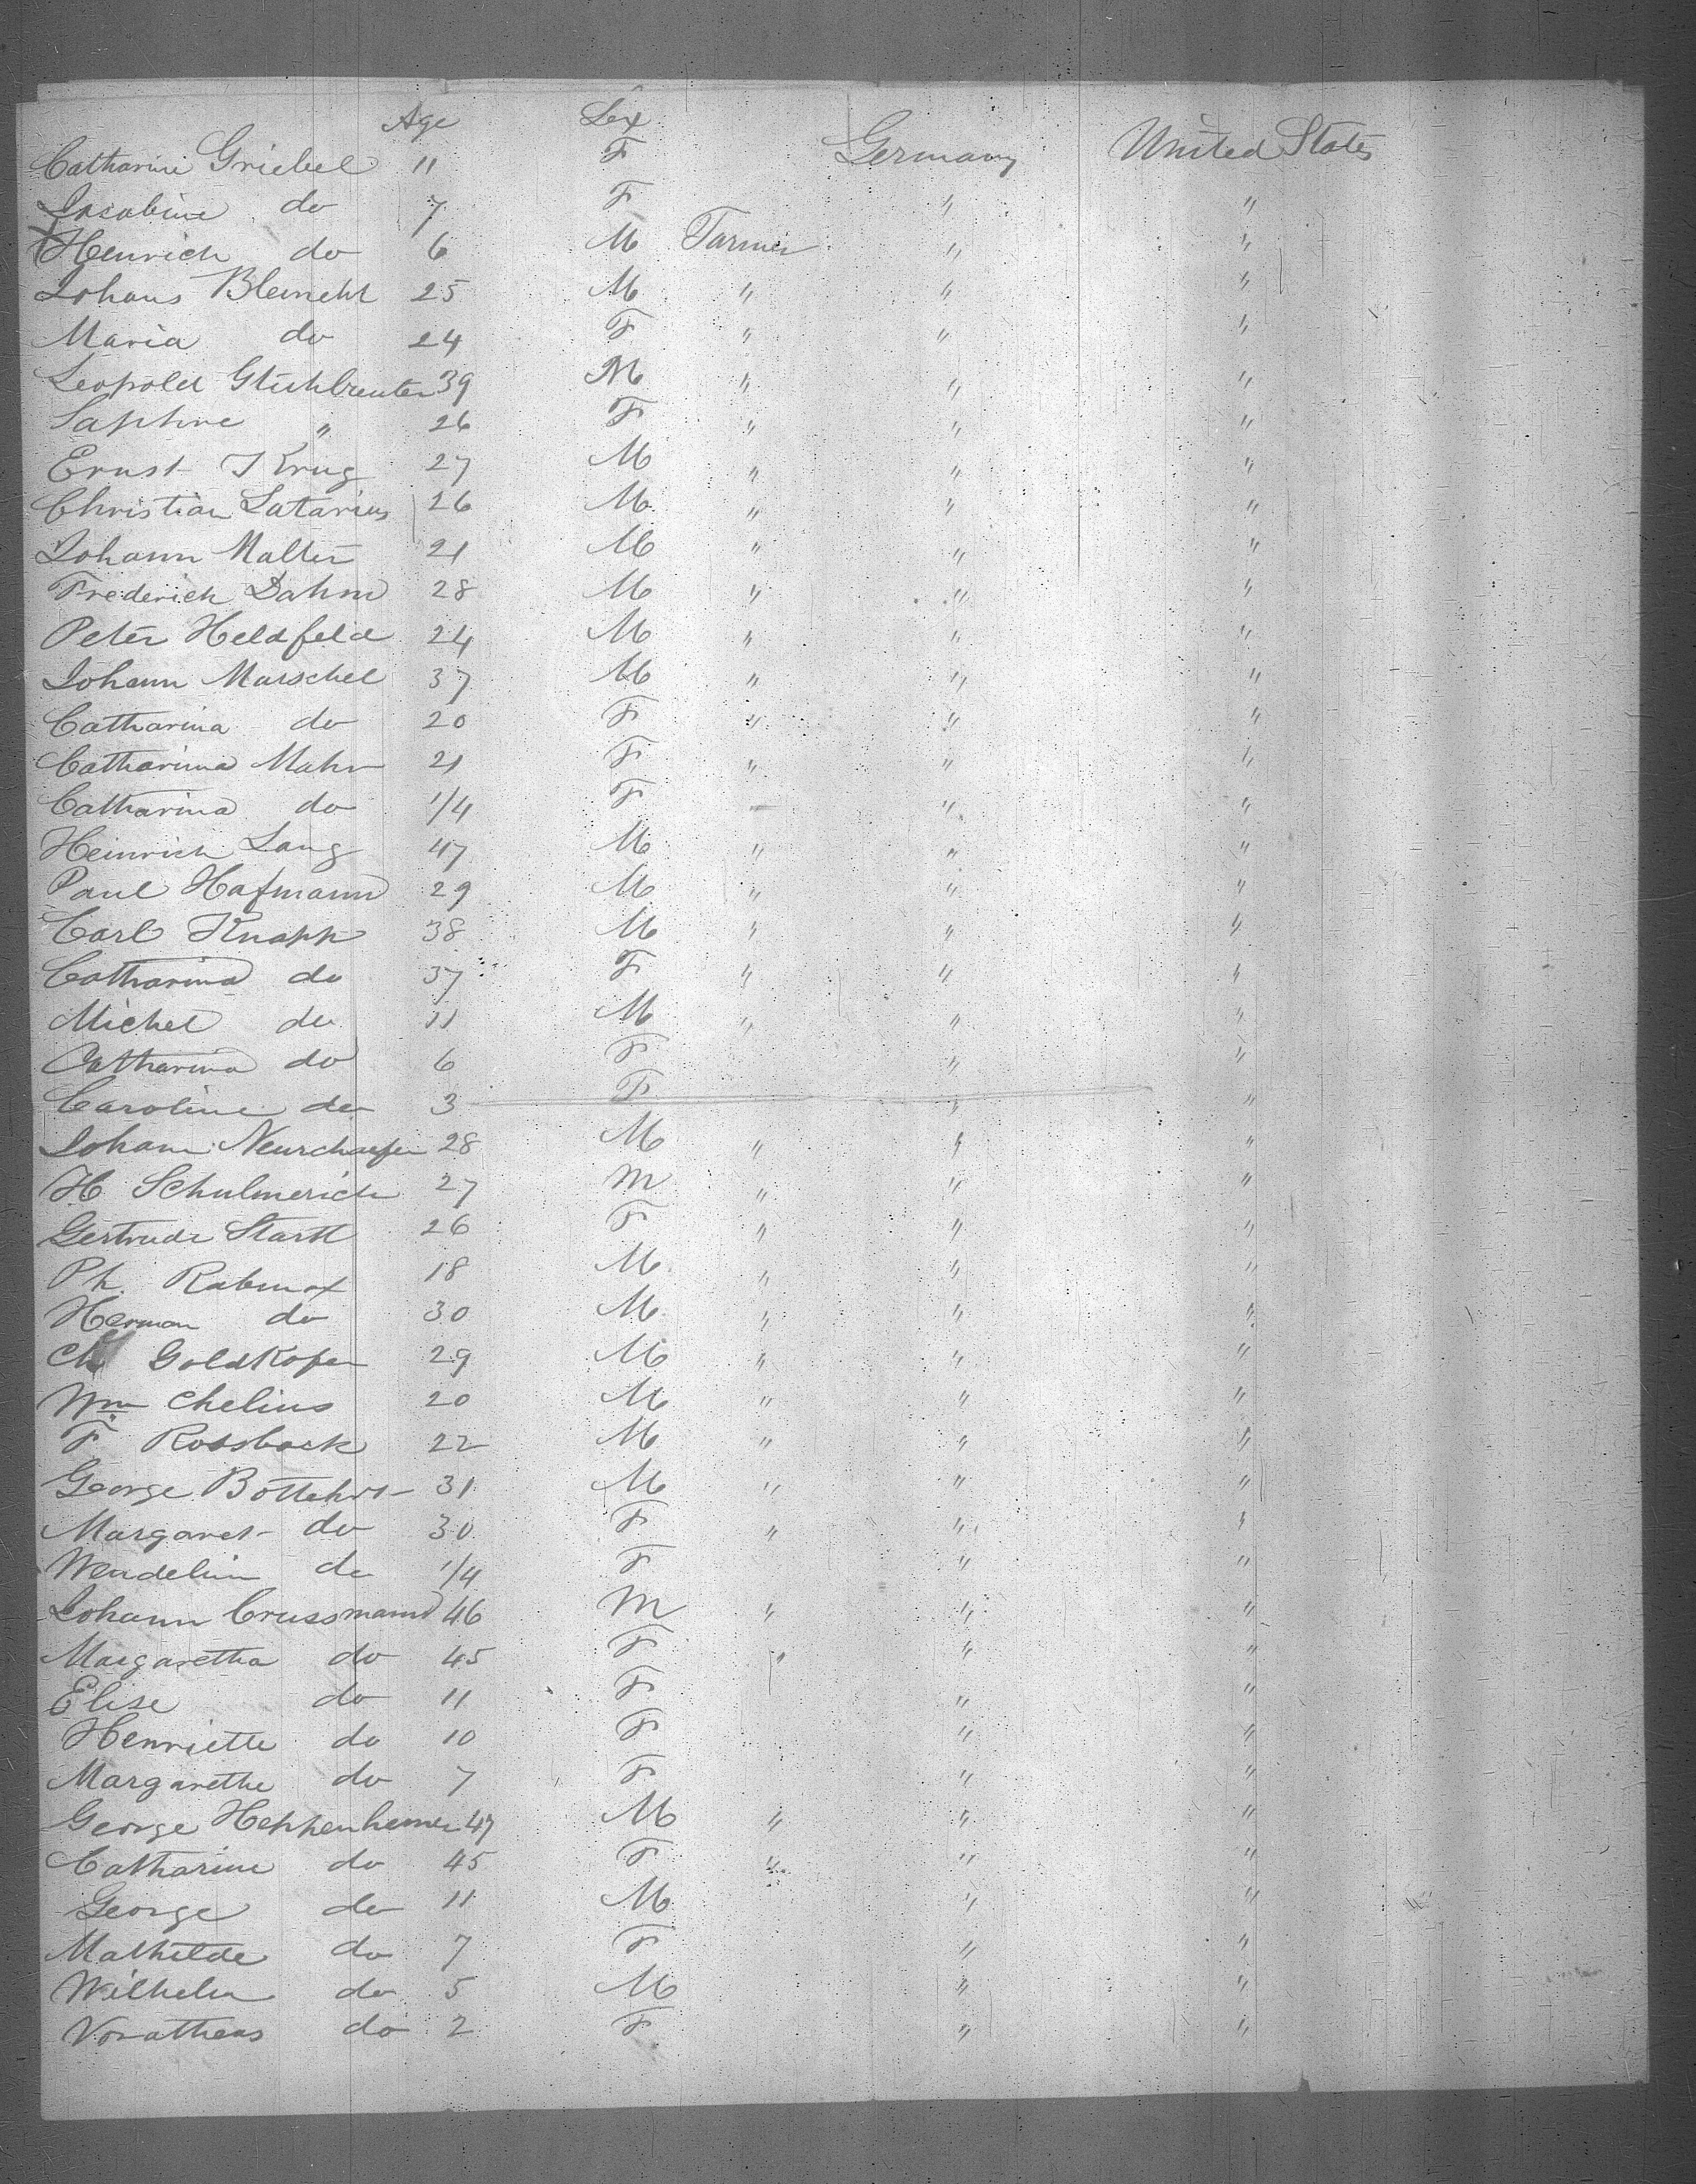 Age Sex
Catharine Griebel 11 F Germany United States
Jacobine do 7 F " "
Henrich do 6 M Farmer " "
Johans Blemeht 25 M " " "
Maria do 24 F " " "
Leopold 39 M " " "
Saphne " 26 F " " "
Ernst Krug 27 M " " "
Christian Latarius 26 M " " "
Johann Malter 21 M " " "
Frederich Dahm 28 M " " "
Peter Heldfeld 24 M " " "
Johann Marschel 37 M " " "
Catharina do 20 F " " "
Catharina Mahr 21 F " " "
Catharina do 1/4 F " "
Heinrich Lang 47 M " " "
Paul Hafmann 29 M " " "
Carl Knapp 38 M " " "
Catharina do 37 F " " "
Michel do 11 M " " "
Catharina do 6 F " "
Caroline do 3 F " "
Johann Neuschaefer 28 M " " "
H Schulmerich 27 M " " "
Gertrude Startt 26 F " " "
Ph. 18 M " " "
Herman do 30 M " " "
Ch Goldkofer 29 M " " "
Wm Chelius 20 M " " "
F Rossback 22 M " " "
George 31 M " " "
Margaret do 30 F " " "
Wendelin do 1/4 F " "
Johann Crussmann 46 M " " "
Margaretha do 45 F " " "
Elise do 11 F " "
Henriette do 10 F " "
Margarethe do 7 F " "
George Heppenhemer 47 M " " "
Catharine do 45 F " " "
George do 11 M " "
Mathilde do 7 F " "
Wilhelm do 5 M " "
Vorotheas do 2 F " "